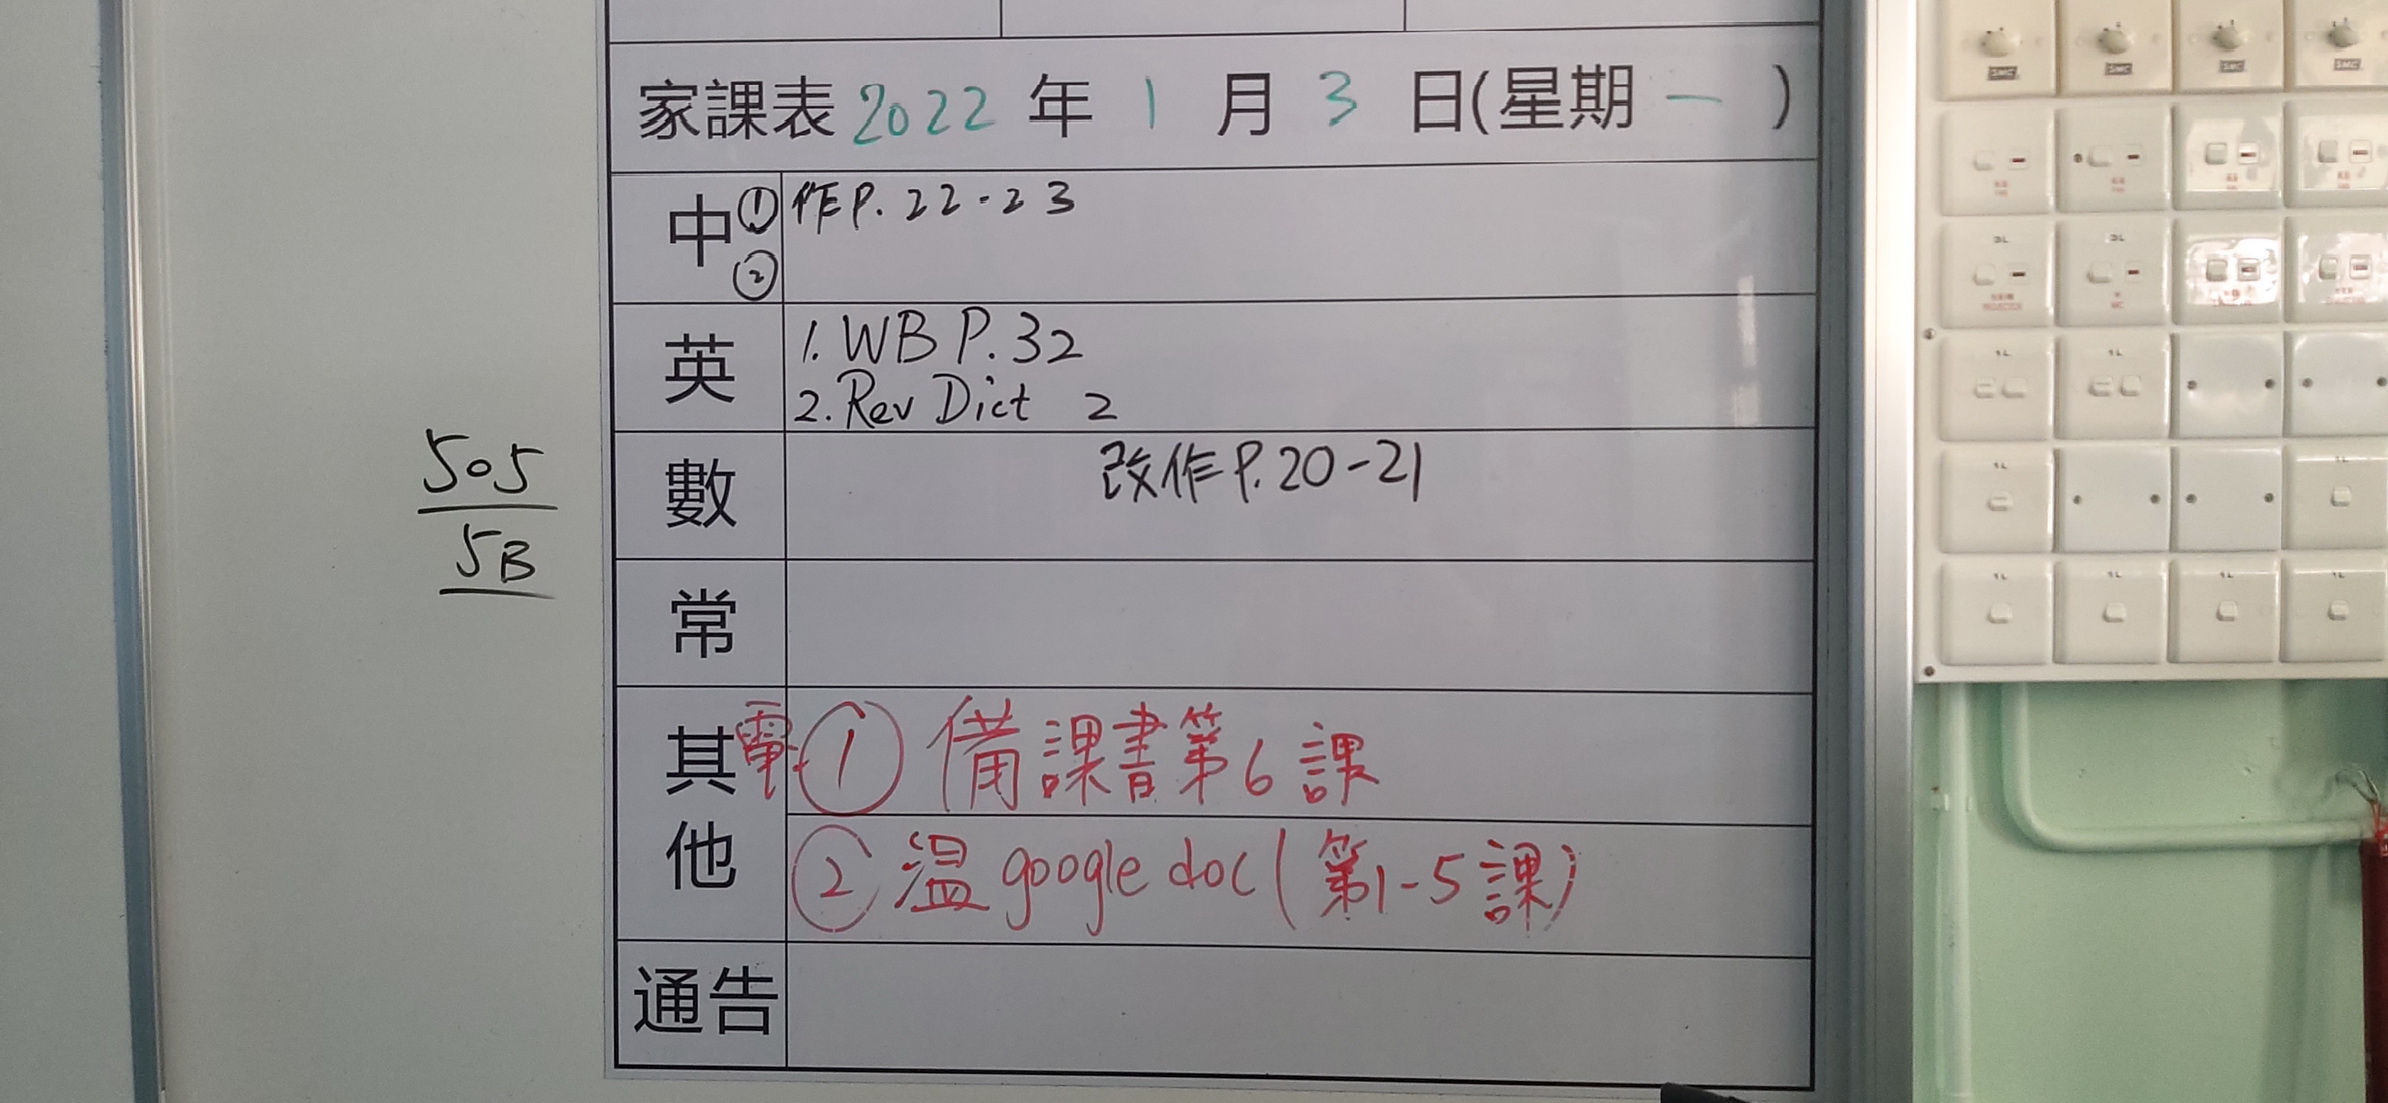 家課表 2022 年 1 月 3 日(星期 一 )
中 ① 作P.22-23
②
英 1. WB P.32
2. Rev Dict 2
數 改作P.20-21
505
5B
常
其他 電 ① 備課書第6課
② 温 google doc (第1-5課)
通告